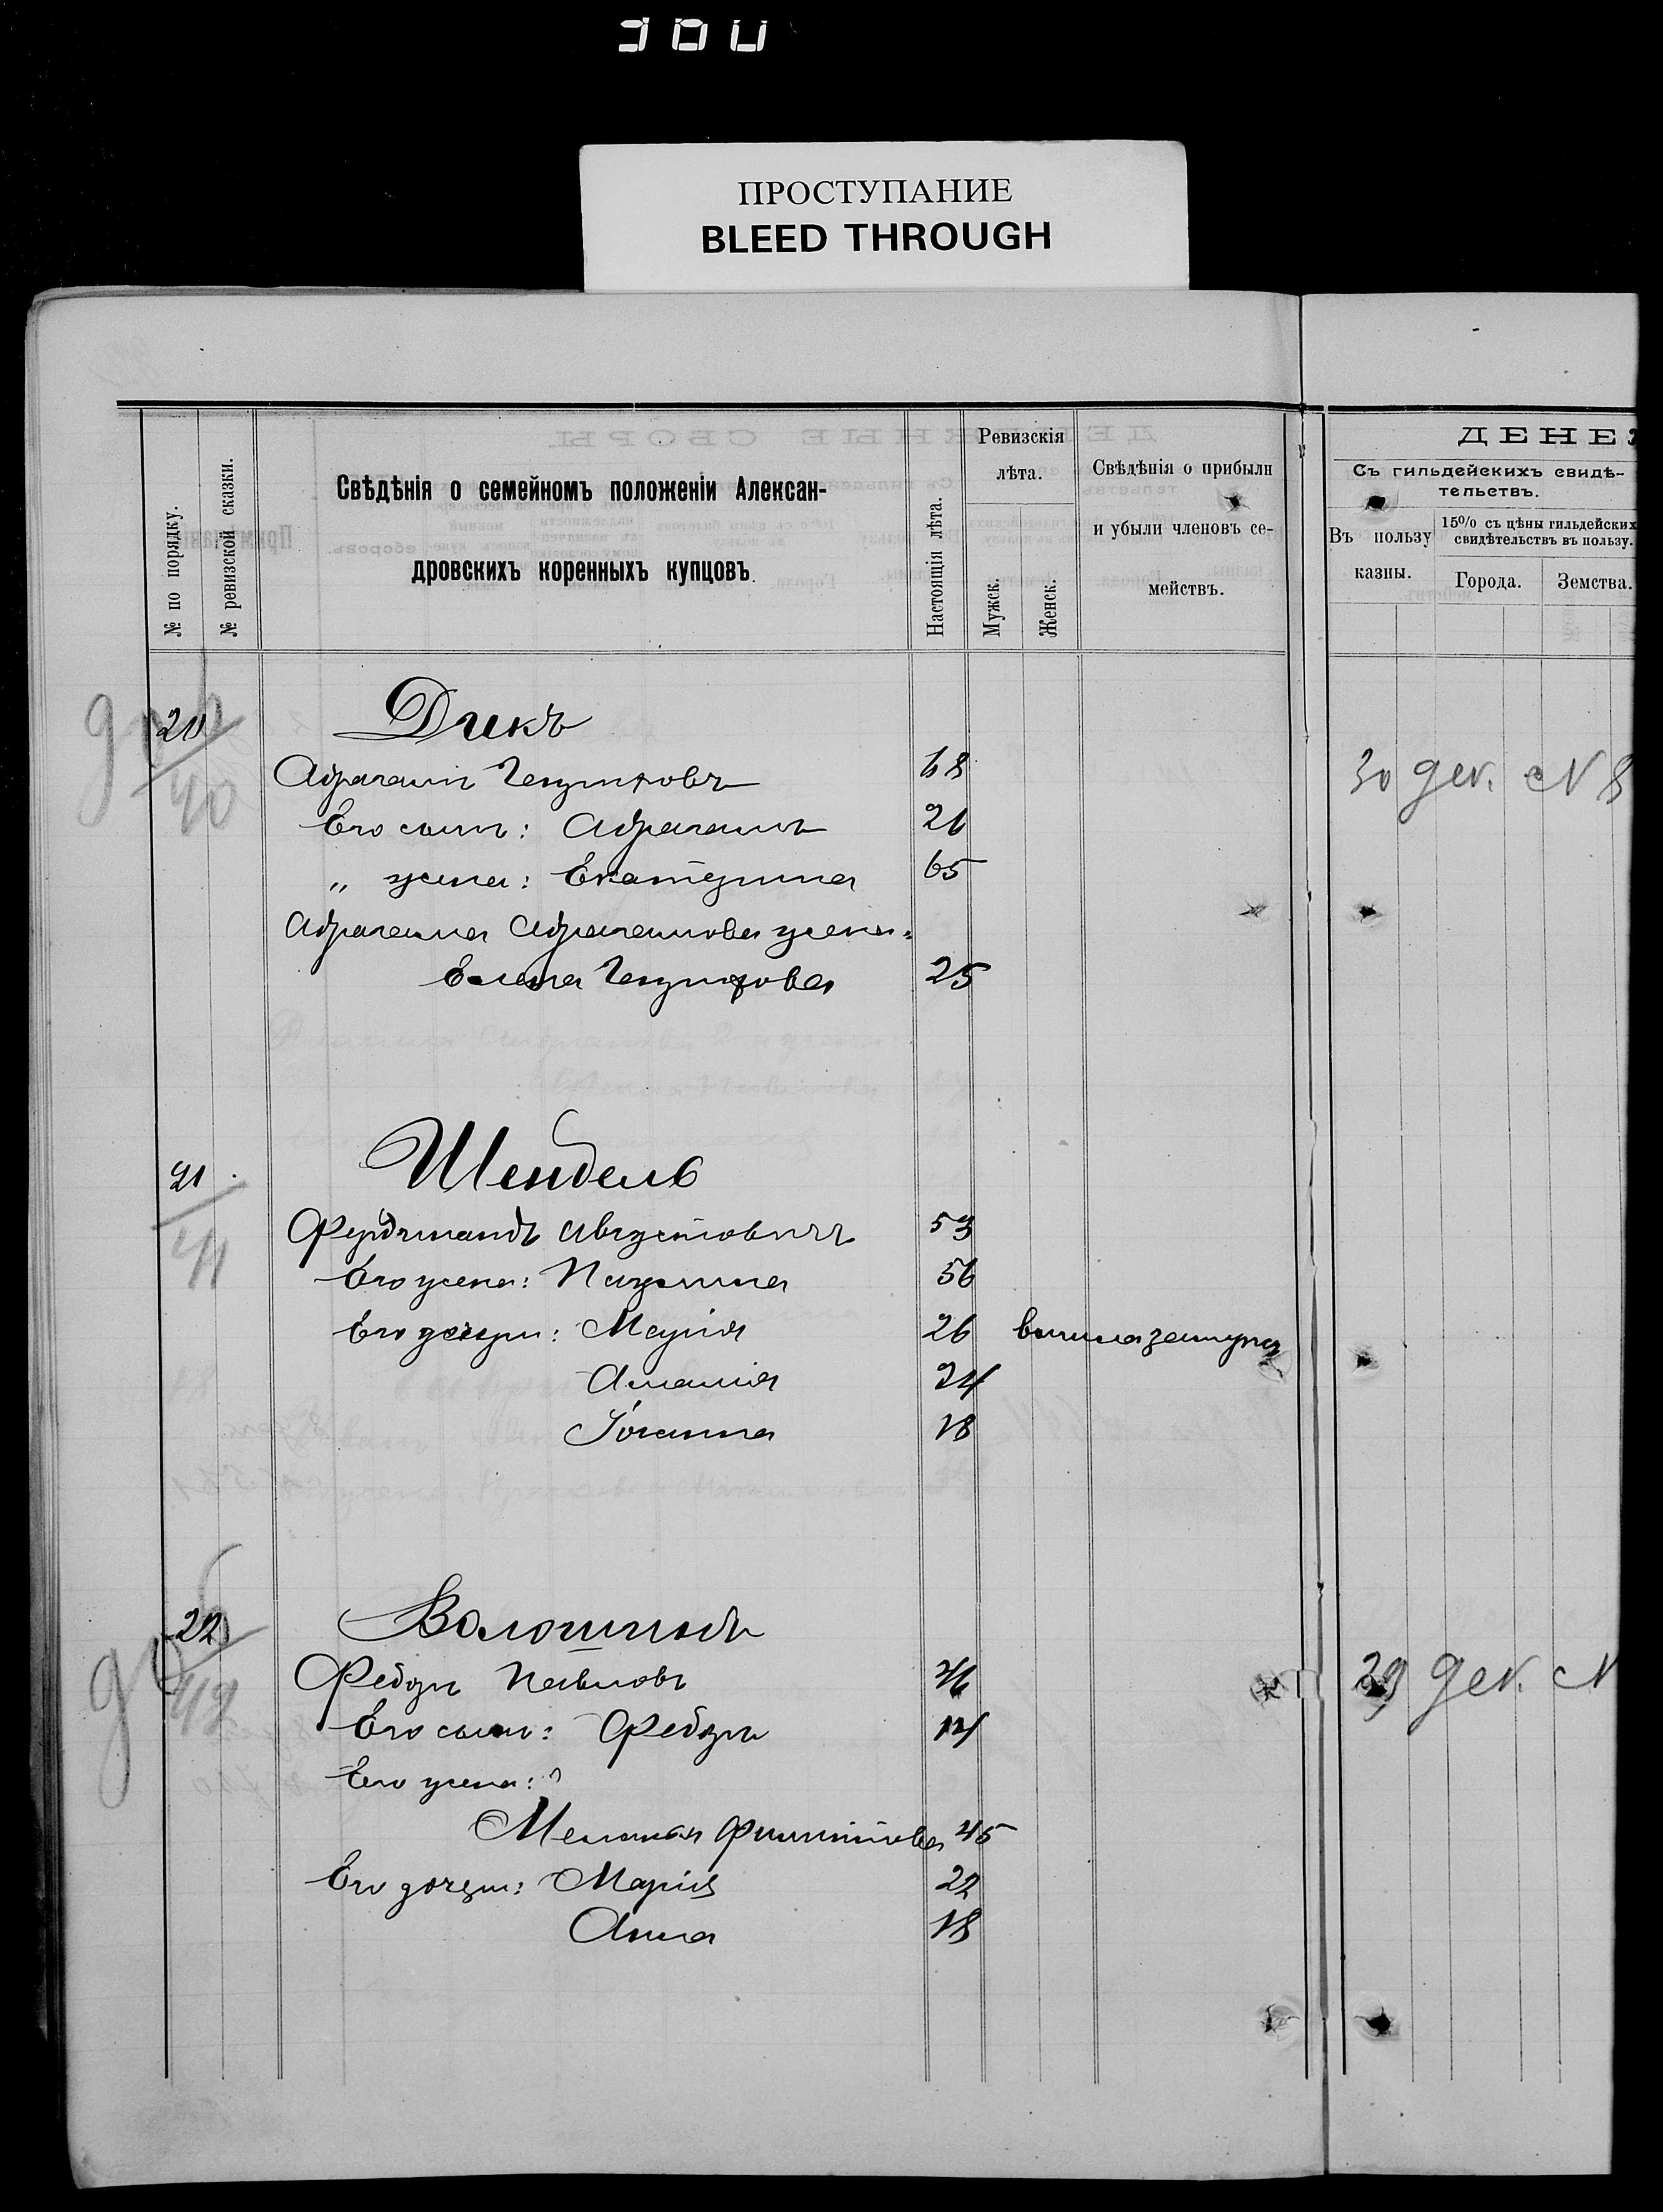 ПРОСТУПАНИЕ
BLEED THROUGH
№ по порядку.
№ ревизской сказки.
Свѣдѣнія о семейномъ положеніи Алексан-
дровскихъ коренныхъ купцовъ.
Настоящія лѣта.
Ревизскія
лѣта.
Мужск.
Женск.
Свѣдѣнія о прибыли
и убыли членовъ се-
мействъ.
ДЕНЕ
Съ гильдейскихъ свидѣ-
тельствъ.
Въ пользу
казны.
15% съ цѣны гильдейских
свидѣтельствъ въ пользу.
Города.
Земства.
20 Дикъ
40
Абрагамъ 68
30 дек. № 8
Его сынъ: Абрагамъ 26
„ жена: Екатерина 65
Абрагама Абрагамова жена:
Елена 25
21 Шендель
41
Фердинандъ Августовичъ 53
Его жена: Паулина 56
Его дочери: Марія 26 вышла замужъ
Амалія 24
Іоганна 18
22 Волошиновъ
42
Федоръ Павловъ
29 дек. №
Его сынъ: Федоръ 14
Его жена:
Меланія Филиппова 45
Его дочери: Марія 22
Анна 18